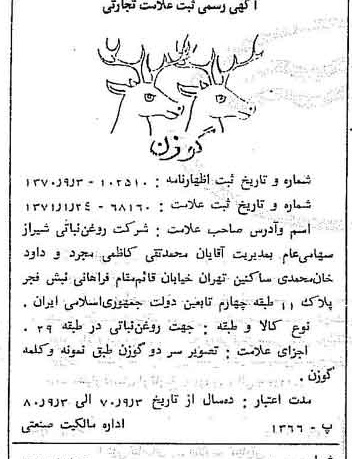 آگهی رسمی ثبت علامت تجارتی
گوزن
شماره و تاریخ ثبت اظهارنامه : ۱۰۲۵۱۰ - ۱۳۷۰٫۹٫۳
شماره و تاریخ ثبت علامت : ۶۸۱۶۰ - ۱۳۷۱٫۱٫۲۴
اسم وآدرس صاحب علامت : شرکت روغن‌نباتی شیراز
سهامی‌عام بمدیریت آقایان محمدتقی کاظمی مجرد و داود
خان‌محمدی ساکنین تهران خیابان قائم‌مقام فراهانی نبش فجر
پلاک ۱۱ طبقه چهارم تابعین دولت جمهوری‌اسلامی ایران .
نوع کالا و طبقه : جهت روغن‌نباتی در طبقه ۲۹ .
اجزای علامت : تصویر سر دو گوزن طبق نمونه وکلمه
گوزن .
مدت اعتبار : ده‌سال از تاریخ ۷۰٫۹٫۳ الی ۸۰٫۹٫۳
پ - ۱۳۶۶ اداره مالکیت صنعتی